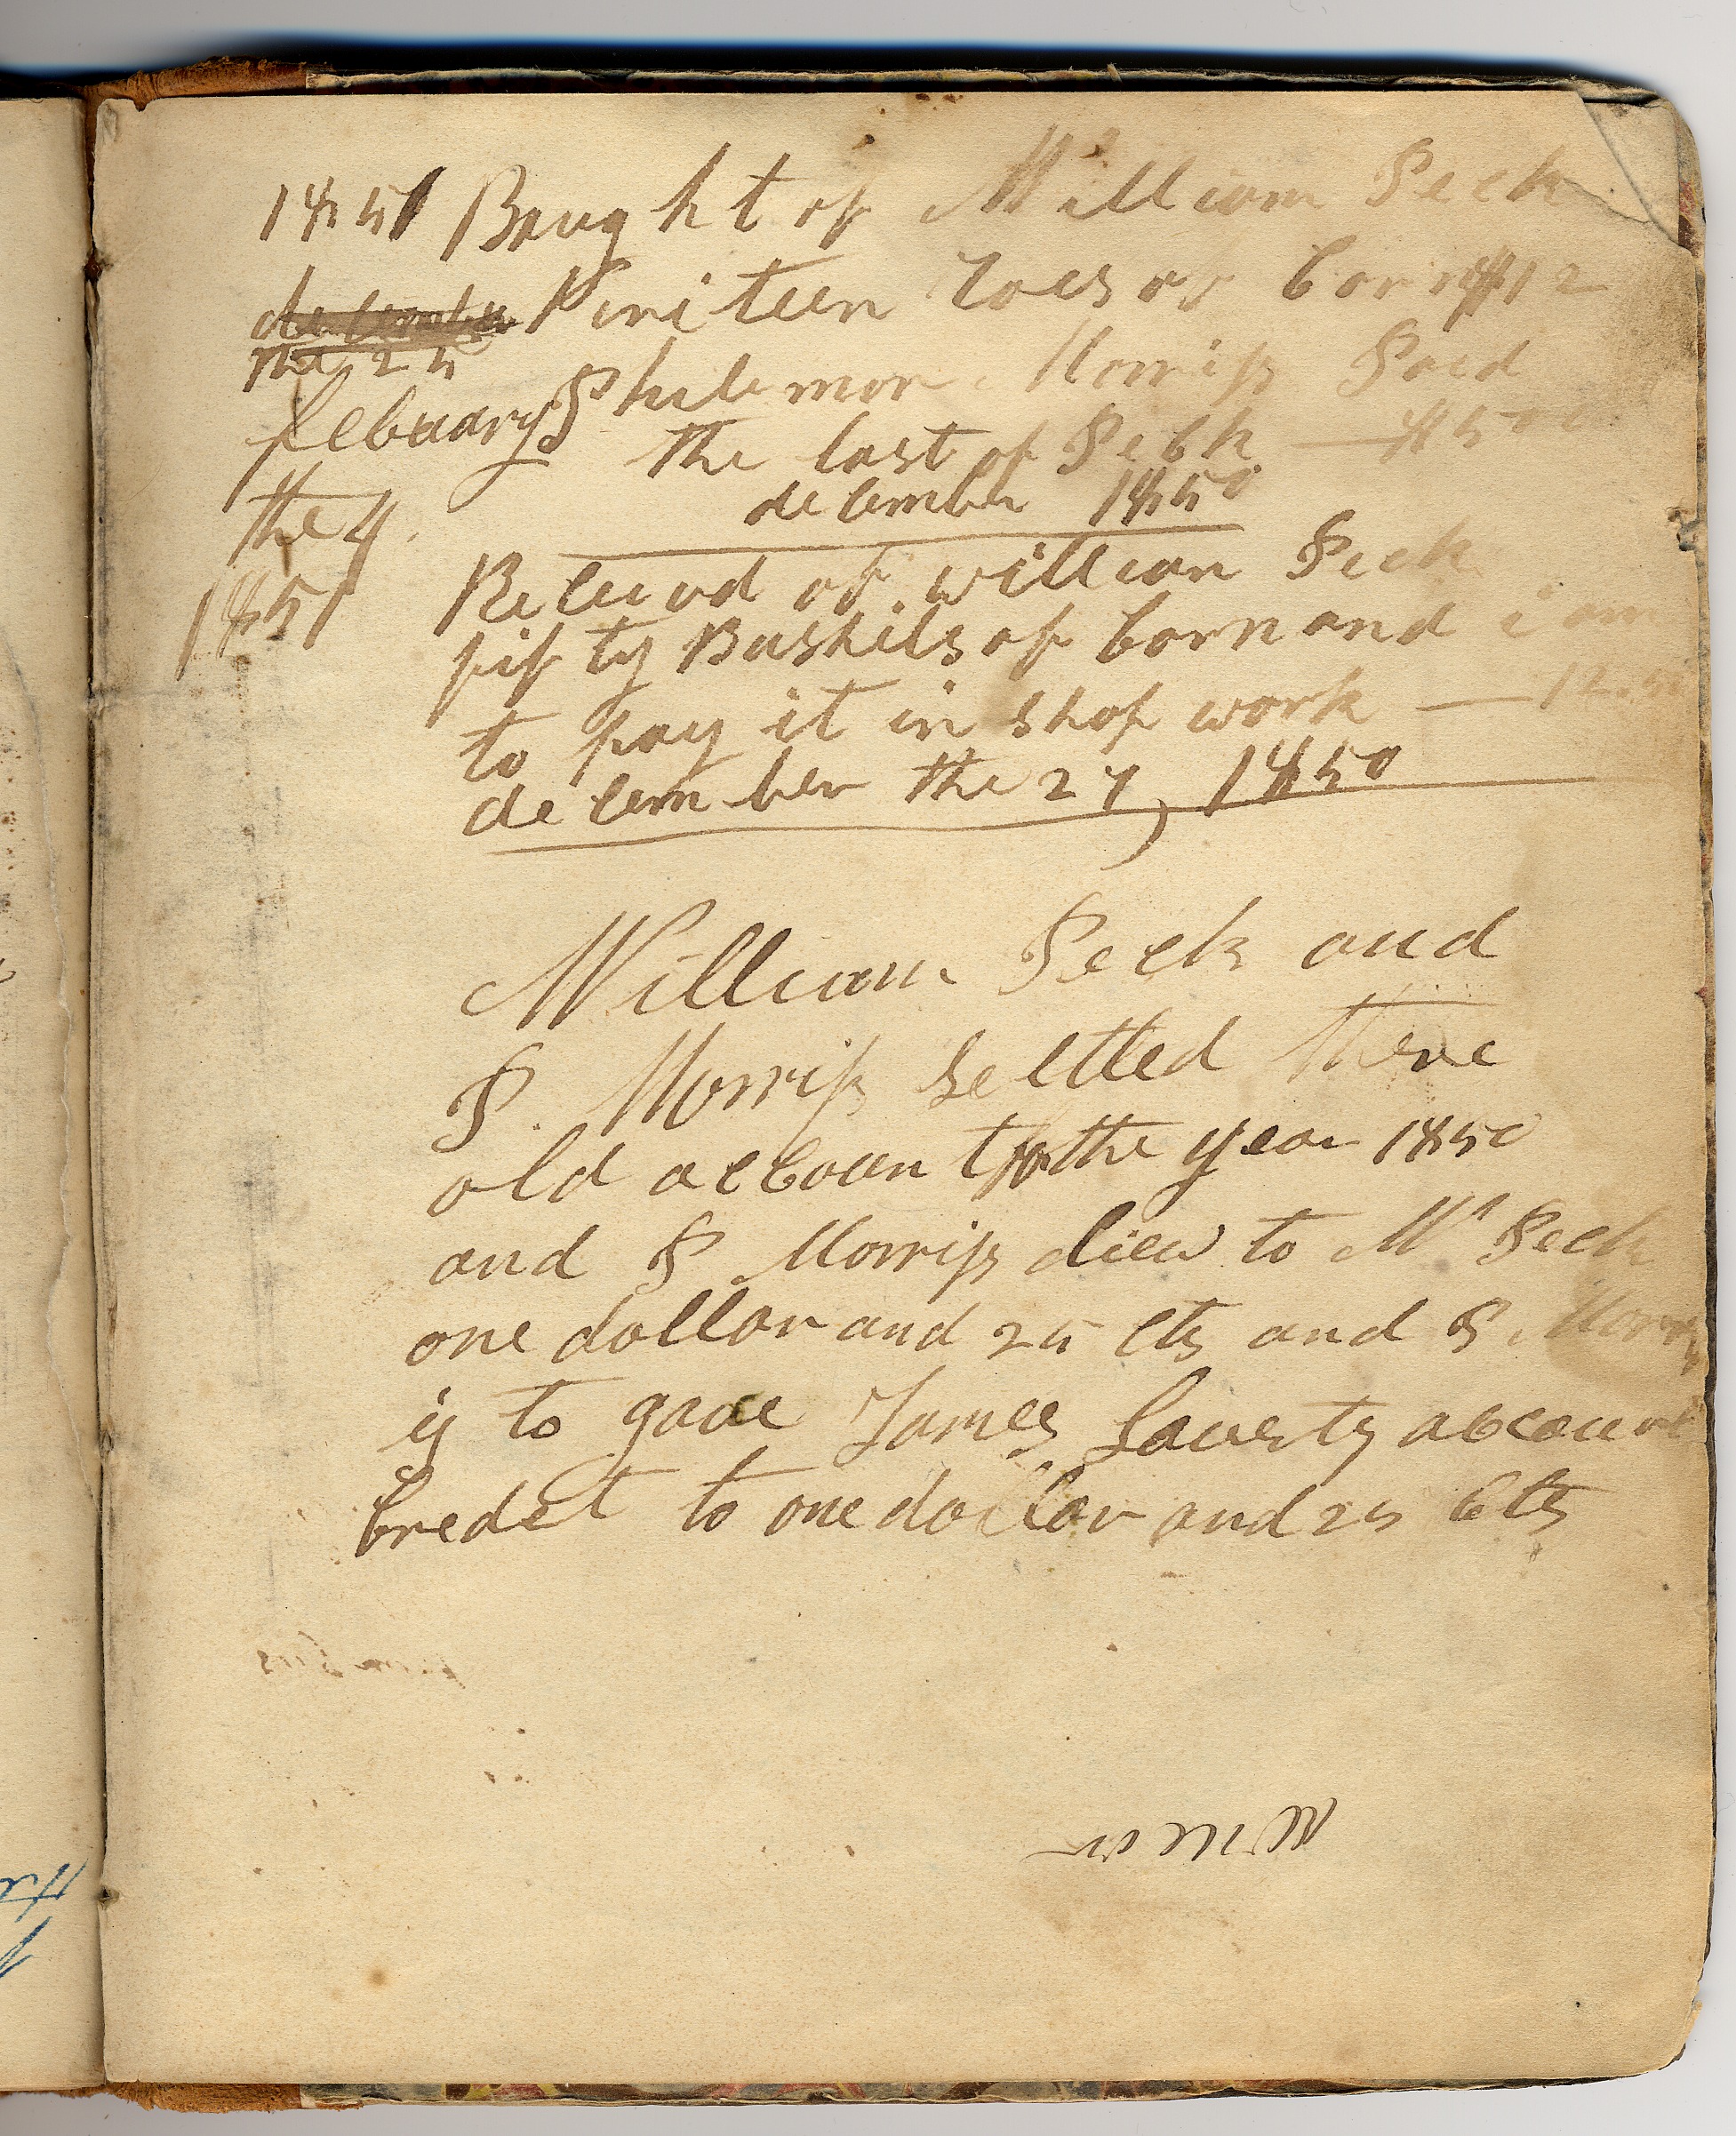 1851 Bought of William Peck
december Nineteen Roes of Corn $12
the 25
febuary Philemon Morriss Paid
the last of Peck — $5 00
the 4
december 1850
1851
Receivd of william Peck
fifty Bushels of Corn and i am
to pay it in shop work — 12.50
december the 27, 1850
William Peck and
P. Morriss settled there
old accoun t for the year 1850
and P Morriss diew to Wm Peck
one dollar and 25 cts and P. Morriss
is to gave James account
Credet to one dollar and 25 Cts